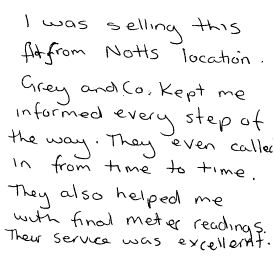 I was selling this
from Notts location.
Grey and Co. kept me
informed every step of
the way. They even called
in from time to time.
They also helped me
with final meter readings.
Their service was excellent.